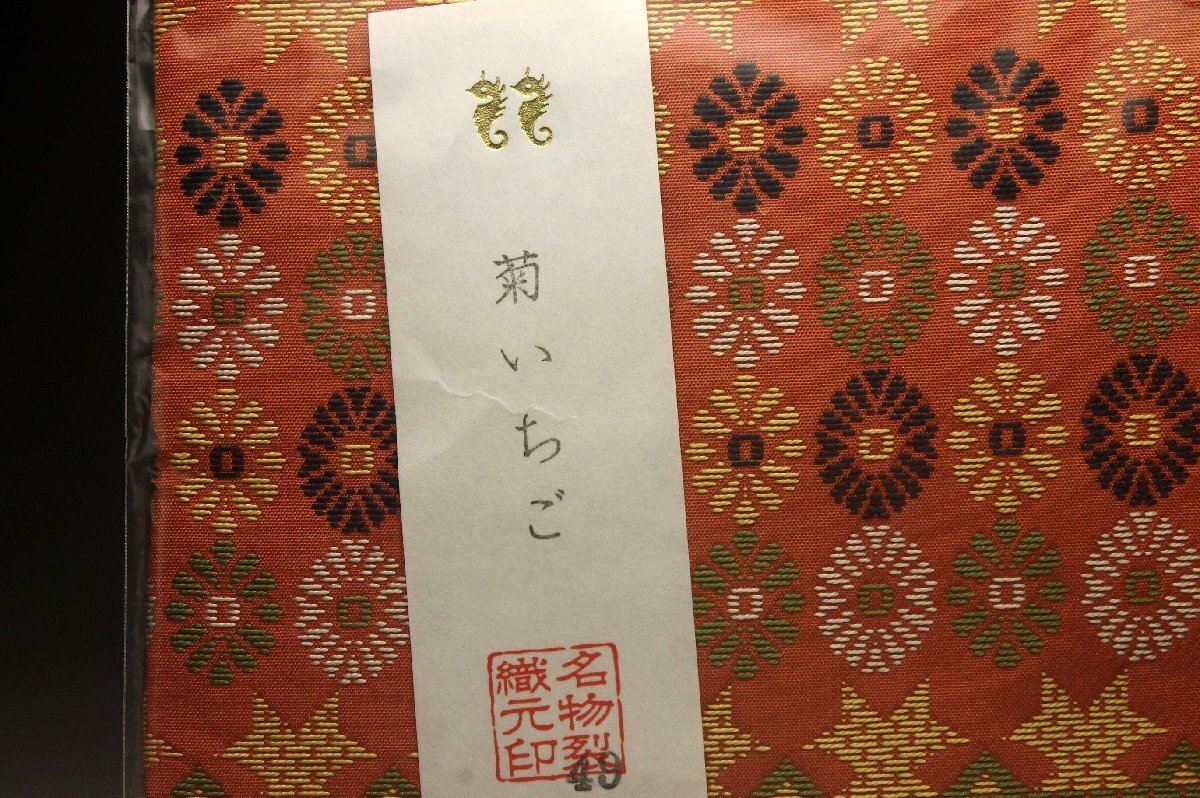 菊いちご
名物裂
織元印
49